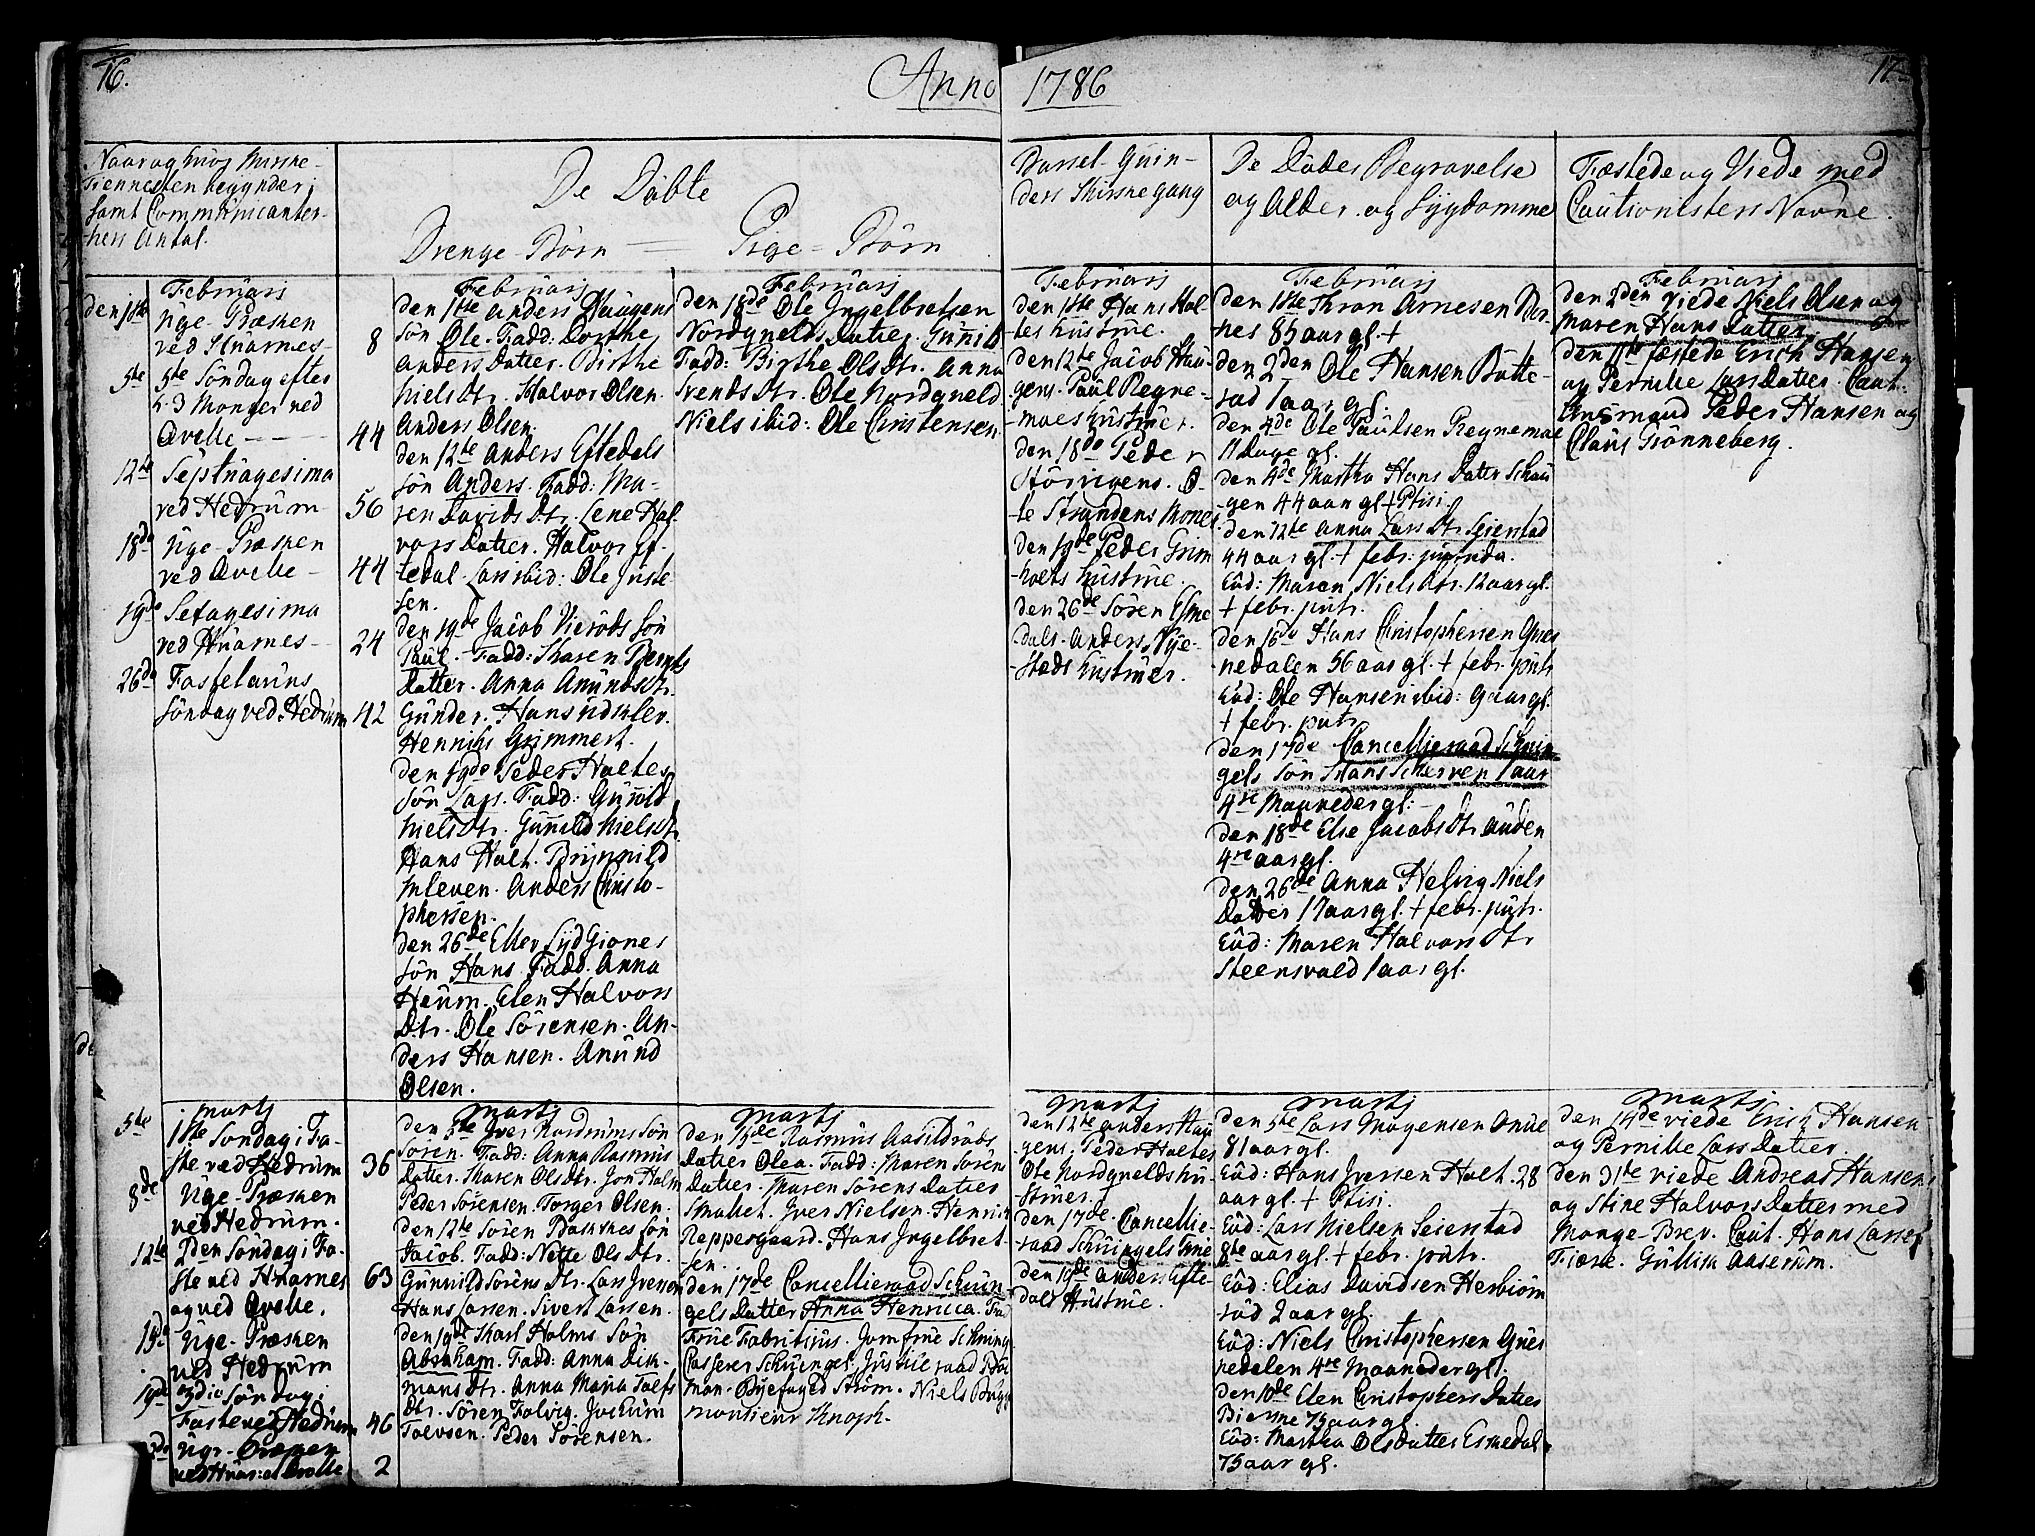 16.
Anno 1786
17
Naar og hvor Kirke-
Tiennesten begynder;
samt Communicanter-
nes Antal.
De Döbte
Drenge-Börn — Pige-Börn
Barsel-Quin-
ders Kirkegang
De Dödes Begravelse
og Alder og Sygdomme
Fæstede og Viede med
Cautionisters Navne.
Februarj
den 1ste Uge-Præken
ved Kvarnes-
8
5te 5te Söndag efter
h. 3 Konger ved
Qvelle - - -
44
12te Septuagesima
ved Hedrum
56
18de Uge-Præken
ved Qvelle -
44
19de Sexagesima
ved Kvarnes -
24
26de Fastelauns
Söndag ved Hedrum
42
Februarj
den 1ste Anders Haugens
sön Ole. Fadd: Dorthe
Anders Datter. Birthe
Niels Dtr. Halvor Olsen.
Anders Olsen.
den 12te Anders Eftedals
sön Anders. Fadd: Ma-
ren Davids Dtr. Lene Hal-
vors Datter. Halvor Ef-
tedal. Lars ibid: Ole Juste-
sen.
den 19de Jacob Vierods sön
Paul. Fadd: Karen Bernts
Datter. Anna Amunds Dtr.
Gunder. Hans Udkler.
Henrik Grimmert.
den 19de Peder Holtes
sön Lars. Fadd: Gunild
Niels Dtr. Gunild Niels Dtr.
Hans Holt. Brynnild
Kleven. Anders Christo-
phersen.
den 26de Ellev Lyd Giones
sön Hans. Fadd. Anna
Heum. Elen Halvors
Dtr. Ole Sörensen. An-
ders Hansen. Amund
Olsen.
Februarj
den 18de Ole Ingelbretsen
Nordqvelds Datter. Gunild
Fadd: Birthe Ols Dtr. Anna
Svends Dtr. Ole Nordqveld
Niels ibid: Ole Christensen.
Februarj
den 1ste Hans Hol-
tes hustrue.
den 12te Jacob Hau-
gens. Paul Regne-
moes hustruer.
den 18de Peder
Störrigens. O-
le Strandens Koner.
den 19de Peder Grim
holts hustrue.
den 26de Sören Esme
dals. Anders Nye-
stads hustruer.
Februarj
den 1ste Thron Arnesen Bor-
nes 85 aar gl. +
den 2den Ole Hansen Bötte-
rud 1 aar gl.
den 4de Ole Paulsen Regnemoe
11 Dage gl.
den 4de Martha Hans Datter Schau
gen 44 aar gl. + Ptisi.
den 12te Anna Lars Dtr. Seierstad
44 aar gl. + febr:
Eod: Maren Niels Dtr. 12 aar gl.
+ febr. putr.
den 16de Hans Christophersen Gues
nedalen 56 aar gl. + febr. putr
Eod: Ole Hansen ibid: 9 aar gl.
+ febr. putr.
den 17de Cancellieraad Schuin
gels sön Hans Scherven 1 aar
4re Maaneder gl: -
den 18de Else Jacobs Dtr. Auden
4re aar gl.
den 26de Anna Helvig Niels
Datter 17 aar gl. + febr. putr.
Eod: Maren Halvors Dtr
Steensvald 1 aar gl.
Februarj
den 2den Viede Niels Olsen og
Maren Hans Datter.
den 11te fæstede Erich Hansen
og Pernille Lars Datter. Caut:
Ansmand Peder Hansen og
Claus Grönneberg.
Martj
5te 1ste Söndag i Fa-
ste ved Hedrum
36
8de Uge-Præken
ved Hedrum.
12te 2den Söndag i Fa-
ste ved Kvarnes
og ved Qvelle.
63
15de Uge-Præken
ved Hedrum
19de 3die Söndag i
Faste ved Hedrum
46
Uge-Præken
ved Kvar: og Qvelle
2
Martj
den 5te Iver Nordrums sön
Sören. Fadd: Anna Rasmus
Datter. Karen Ols Dtr. Jon Holm
Peder Sörensen. Torger Olsen.
den 12te Sören Bakkes sön
Jacob. Fadd: Nette Ols Dtr.
Gunnild Sörens Dtr. Lars Iversen
Hans Larsen. Sivert Larsen.
den 19de Karl Holms Sön
Abraham. Fadd: Anna Dik-
mans Dtr. Anna Maria Tolfs
Dtr. Sören Falvig. Jockum
Tolvsen. Peder Sörensen.
Martj
den 15de Rasmus Aasildröds
Datter Olea. Fadd: Karen Sörens
Datter. Karen Sörens Datter
Iver Nielsen. Henrik
Reppesgaard. Hans Ingelbret-
sen.
den 17de Cancellieraad Schuin
gels Datter Anna Henricca. Fad
Frue Fabritius. Jomfrue Schuing
Casserer Schuingel, Justice raad
Byefoged Ström. Niels Bugge
Monsieur Knoph.
Martj
den 12te Anders Hau
gens. Peder Holtes
Ole Nordqvelds hu-
struer.
den 17de Cancellie-
raad Schuingels Frue
den 19de Anders Efte-
dals Hustrue.
Martj
den 5te Lars Mogensen Omue
81 aar gl.
Eod: Hans Iversen Holt. 28
aar gl. + Ptisi.
Eod: Lars Nielsen Seierstad
8te aar gl. + febr. putr.
Eod: Elias Davidsen Herbiörn
röd 2 aar gl.
Eod: Niels Christophersen Gues
nedalen 4re Maaneder gl.
den 10de Elen Christophers Datter
Bierkne 75 aar gl.
Eod: Martha Ols Datter Esmedal.
75 aar gl.
Martj
den 14de viede Erich Hansen
og Pernille Lars Datter.
den 31te viede Andreas Hansen
og Stine Halvors Datter med
Konge-Brev. Caut. Hans Larsen
Fiære. Gullik Aaserum.